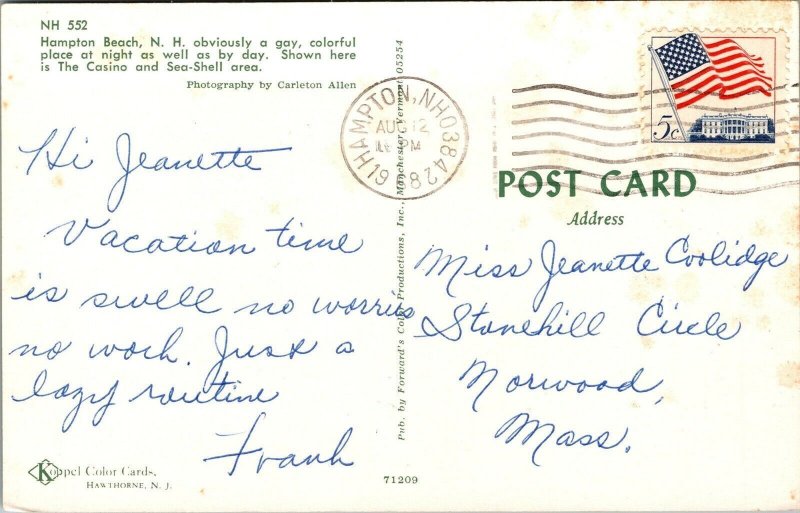 NH 552
Hampton Beach, N. H. obviously a gay, colorful
place at night as well as by day. Shown here
is The Casino and Sea-Shell area.
Photography by Carleton Allen
HAMPTON, NH 03842
AUG 12
PM
1968
5c
POST CARD
Address
Hi Jeanette
Vacation time
is swell no worries
no work. Just a
lazy routine
Frank
Miss Jeanette Coolidge
Stonehill Circle
Norwood,
Mass.
Pub. by Forward's Color Productions, Inc., Manchester, Vermont 05254
Koppel Color Cards,
HAWTHORNE, N. J.
71209